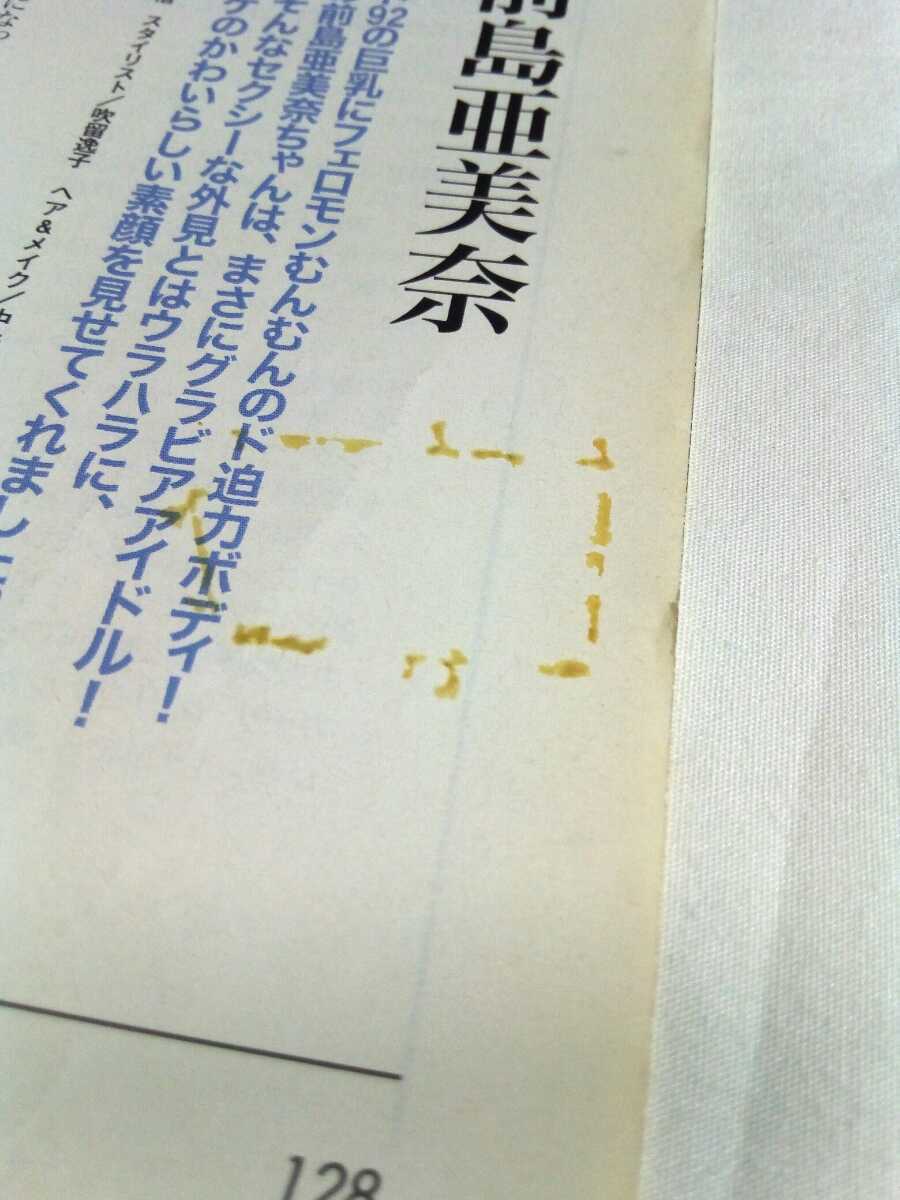 前島亜美奈
92の巨乳にフェロモンむんむんのド迫力ボディ！
前島亜美奈ちゃんは、まさにグラビアアイドル！
そんなセクシーな外見とはウラハラに、
のかわいらしい素顔を見せてくれました
スタイリスト/吹留逸子 ヘア&メイク/中
になっ
128